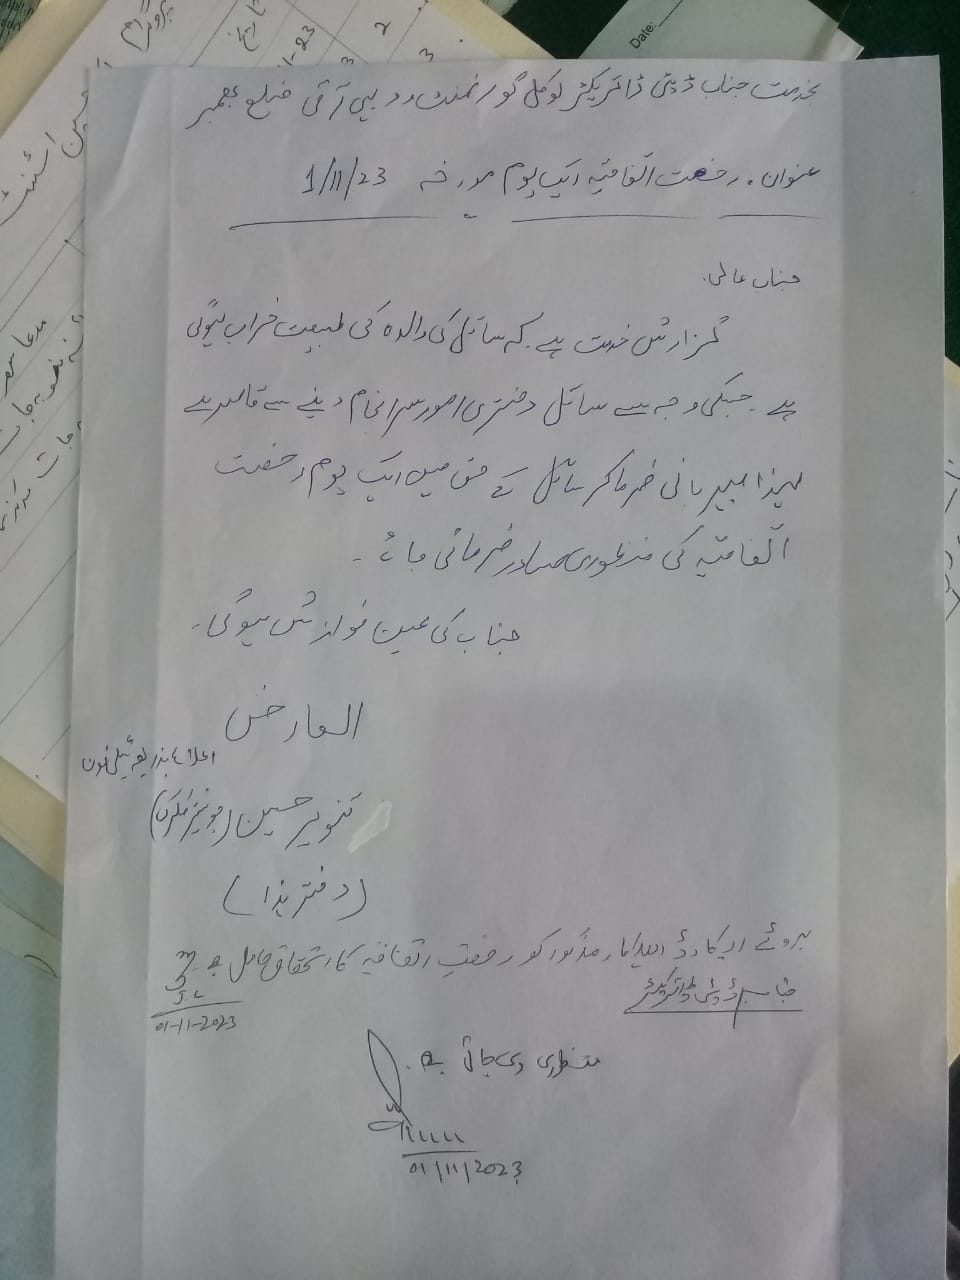 بخدمت جناب ڈپٹی ڈائریکٹر لوکل گورنمنٹ و دیہی ترقی ضلع بھمبر
عنوان۔ رخصت اتفاقیہ ایک یوم مورخہ 1/11/23
جناب عالی۔
گزارش خدمت ہے کہ سائل کی والدہ کی طبیعت خراب ہوگئی
ہے۔ جسکی وجہ سے سائل دفتری امور سرانجام دینے سے قاصر ہے
لہذا مہربانی فرما کر سائل کے حق میں ایک یوم رخصت
اتفاقیہ کی منظوری صادر فرمائی جائے۔
جناب کی عین نوازش ہوگی۔
العارض
اطلاع بذریعہ ٹیلی فون
تنویر حسین (جونیئر کلرک)
(دفتر ہذا)
بروئے ریکارڈ اہلیکار مذکور کو رخصت اتفاقیہ کا استحقاق حاصل ہے۔
01-11-2023
جناب ڈپٹی ڈائریکٹر
منظوری دی جاتی ہے۔
01/11/2023
Date:
پروگرام
تاریخ